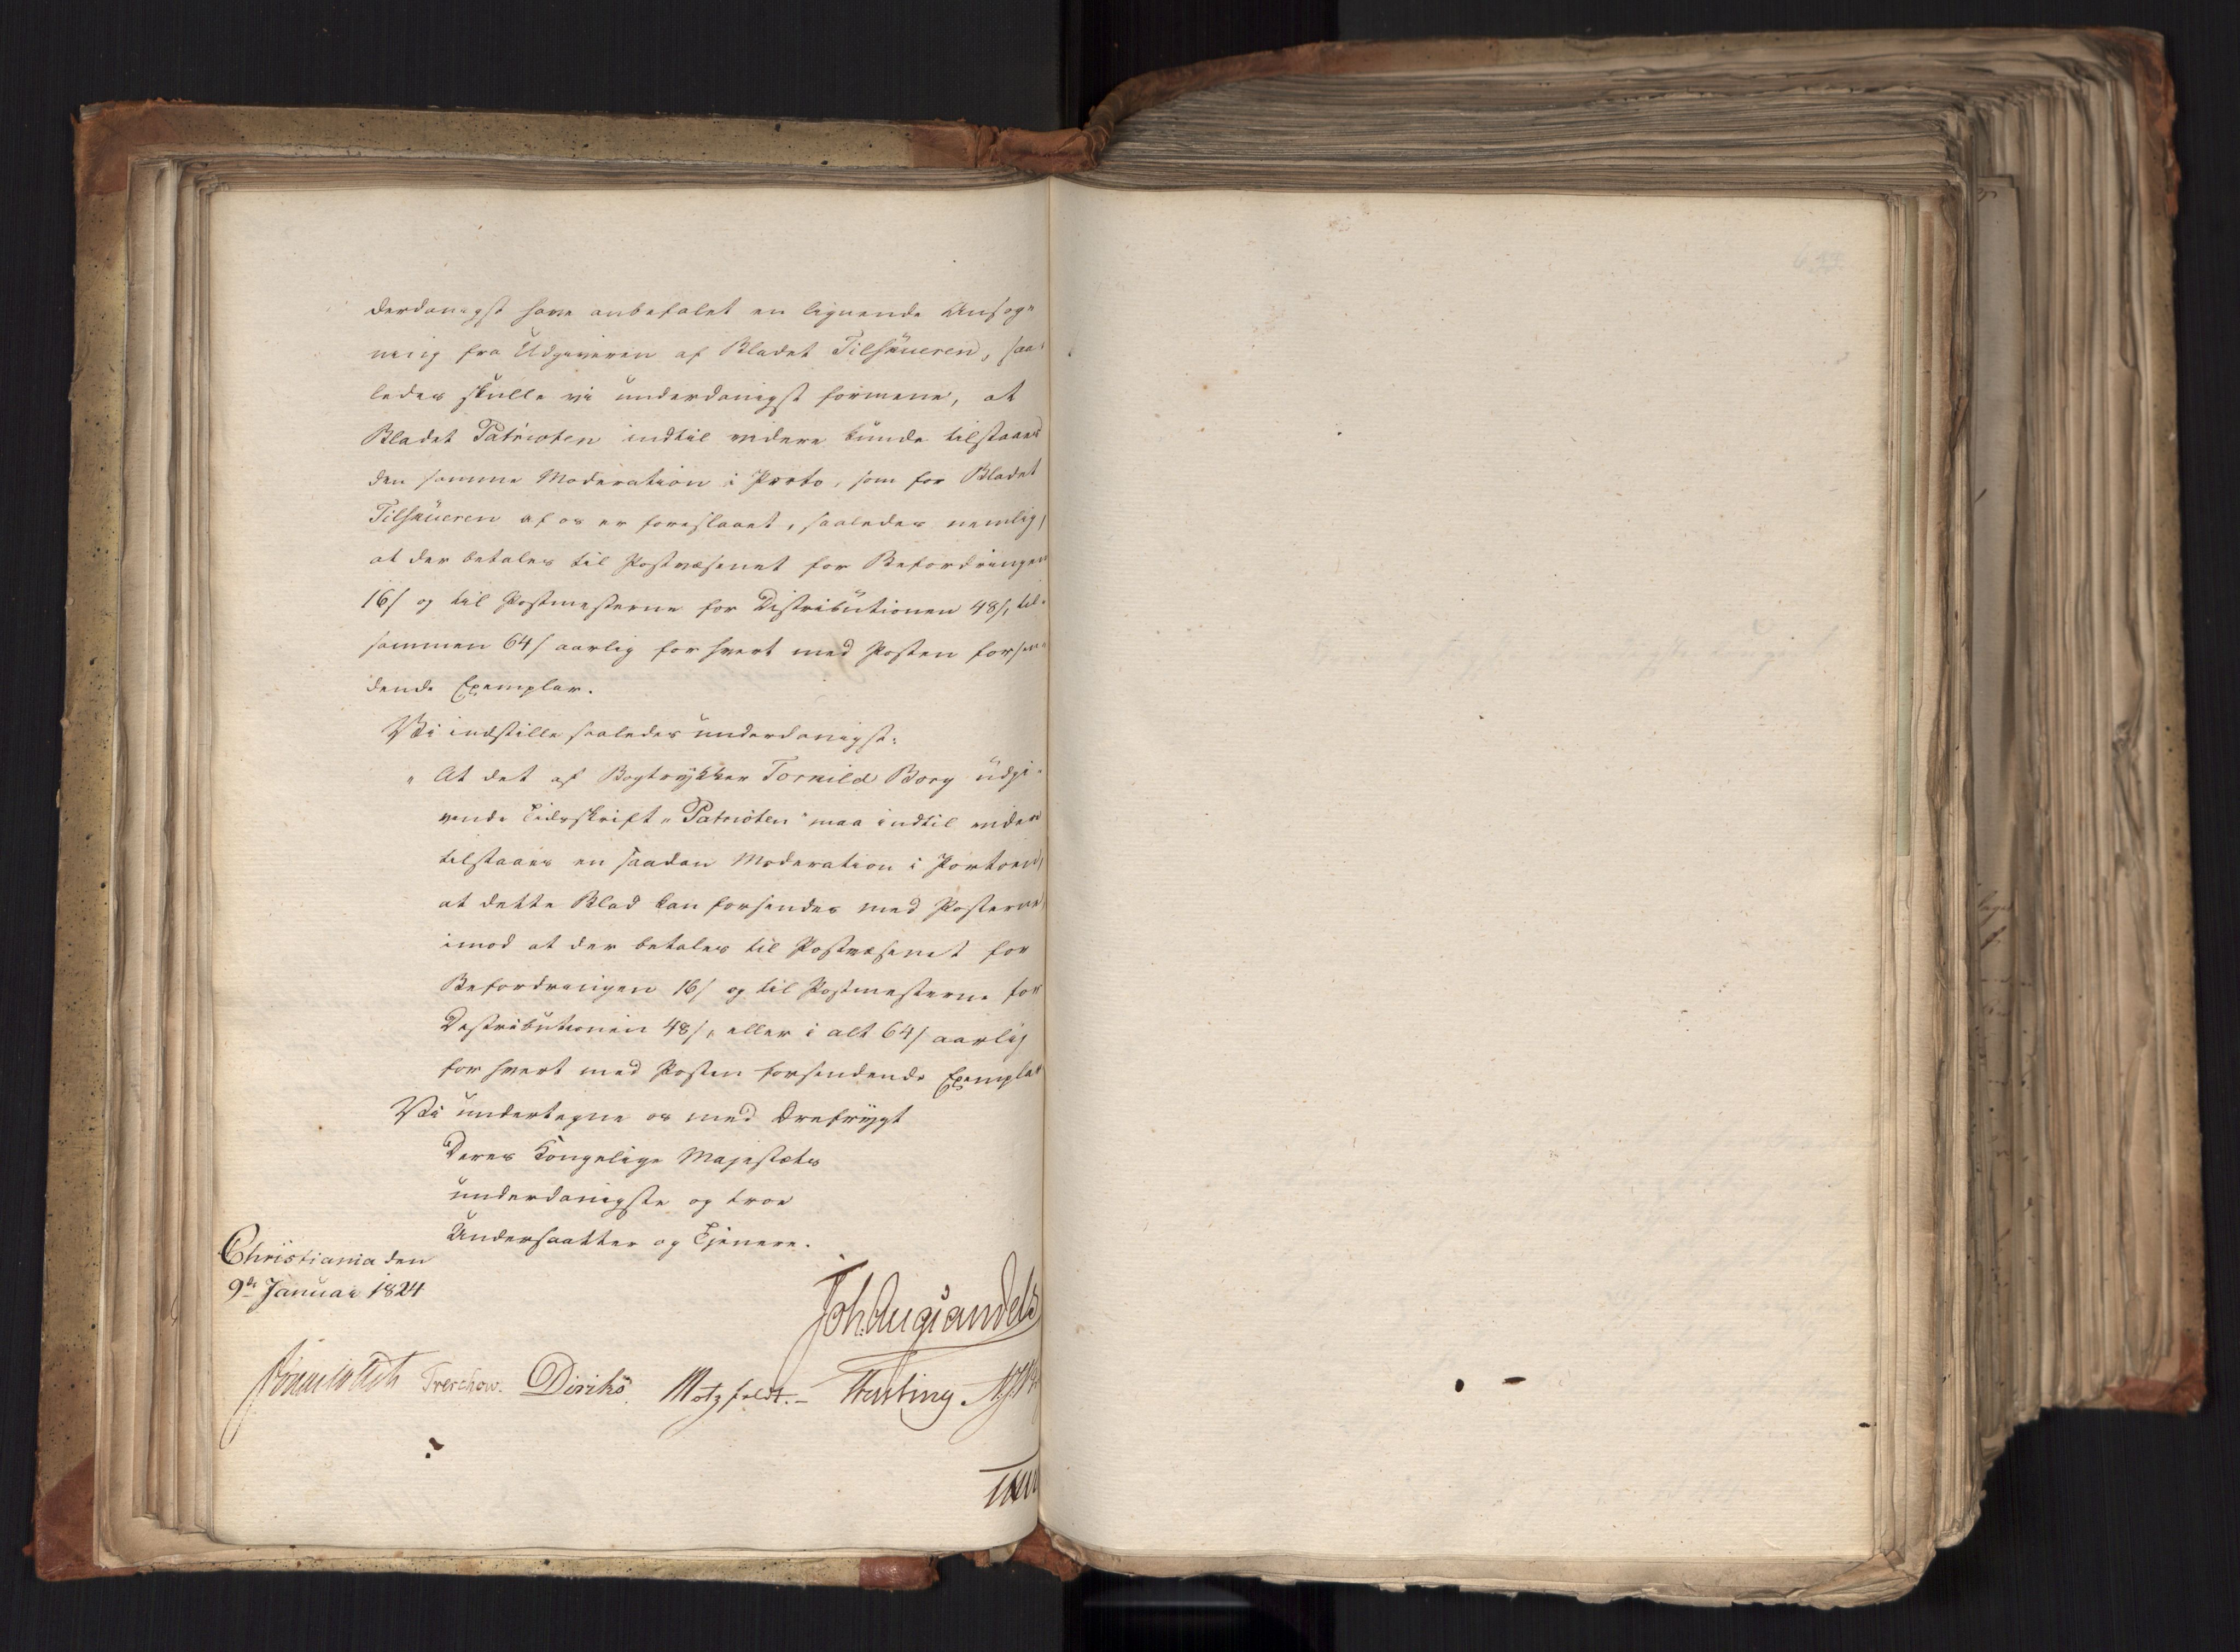 derdanigst have anbefalet en lignende Ansøg-
ning fra Udgiveren af Bladet Tilskueren, saa-
ledes skulle vi underdanigst formene, at
Bladet Patrioten indtil videre kunde tilstaaes
den samme Moderation i Porto, som for Bladet
Tilskueren af os er foreslaaet, saaledes nemlig,
at der betales til Postvæsenet for Befordringen
16 s og til Postmesterne for Distributionen 48 s, til-
sammen 64 s aarlig for hvert med Posten forsen-
dende Exemplar.
Vi indstille saaledes underdanigst:
„At det af Bogtrykker Torkild Borg udgi-
vende Tidsskrift „Patrioten“ maa indtil videre
tilstaaes en saadan Moderation i Portoen,
at dette Blad kan forsendes med Posterne,
imod at der betales til Postvæsenet for
Befordringen 16 s og til Postmesterne for
Distributionen 48 s, eller i alt 64 s aarlig
for hvert med Posten forsendende Exemplar
Vi undertegne os med Ærefrygt
Deres Kongelige Majestæts
underdanigste og troe
Undersaatter og Tjenere.
Christiania den
9de Januar 1824
Joh. Aug. Sandels
Sommerhielm Treschow. Diriks. Motzfeldt. Fasting.